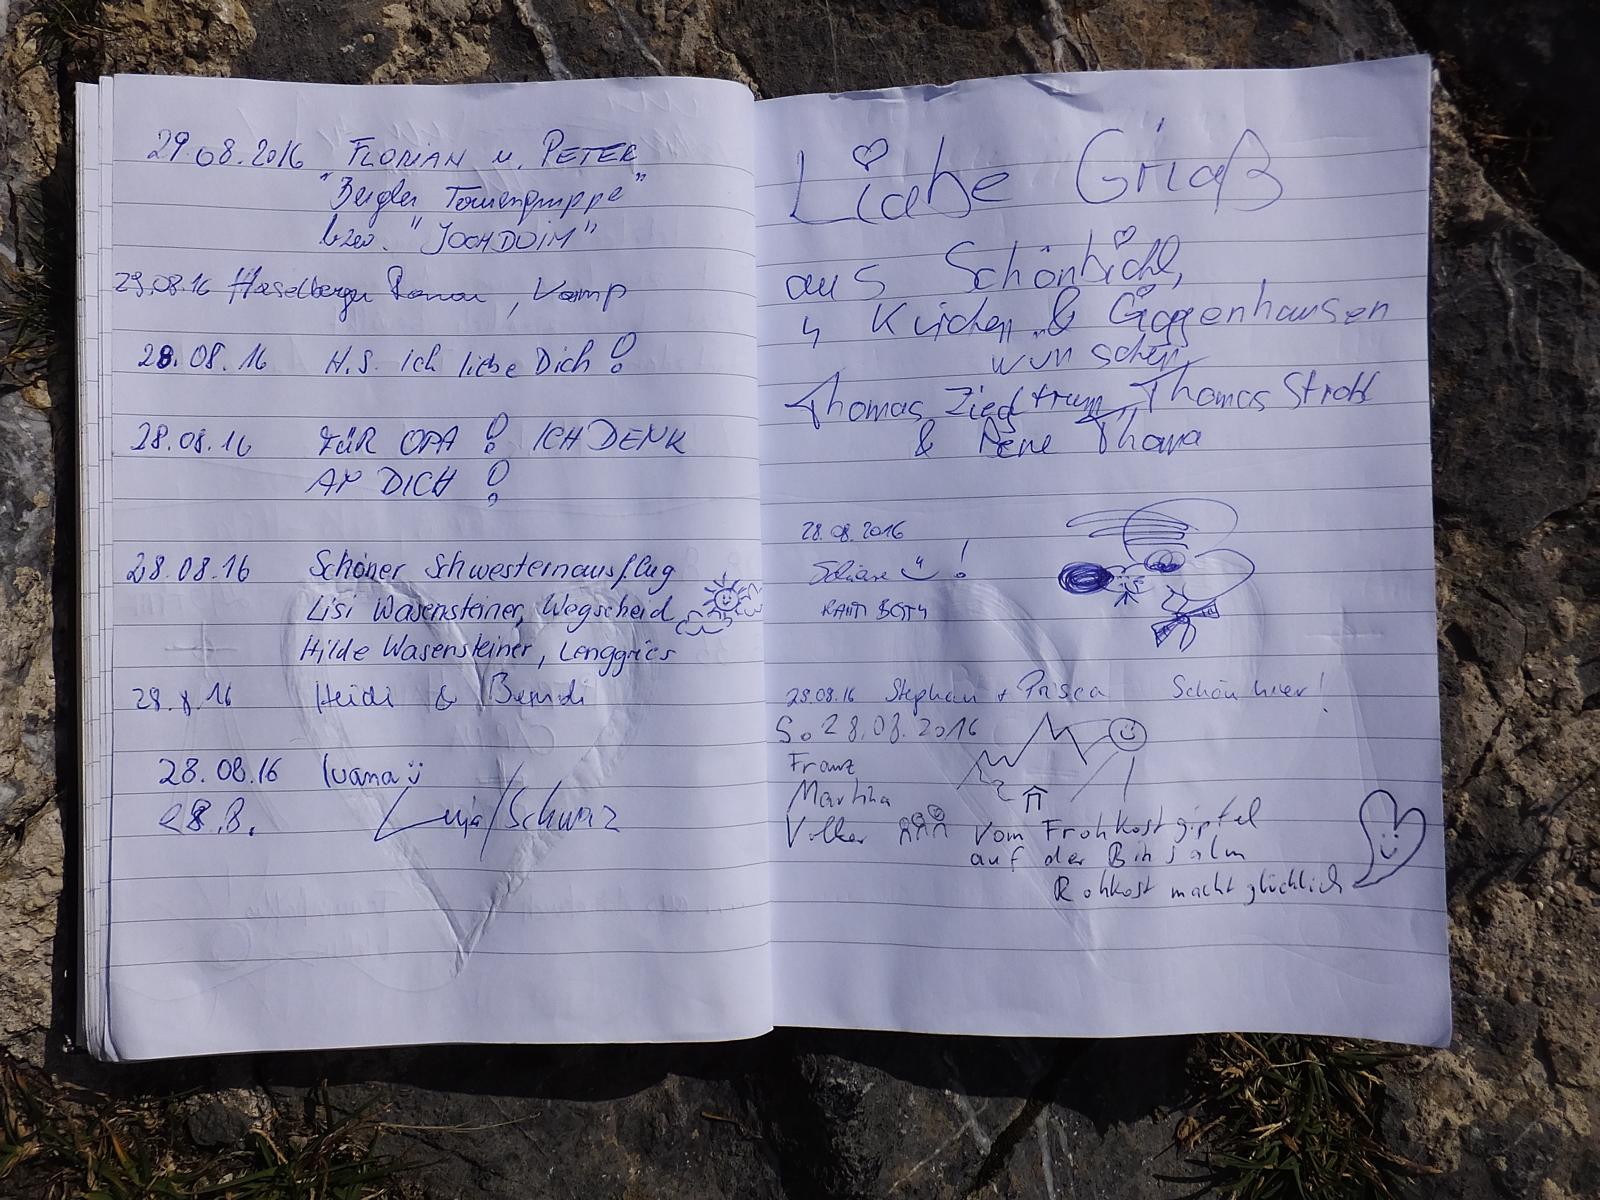 29.08.2016 FLORIAN u. PETER
"Bergler Tourengruppe"
bzw. "JOCHDOIM"
29.08.16 Haselberger, Vomp
28.08.16 H.S. ich liebe Dich!
28.08.16 FÜR OPA! ICH DENK
AN DICH!
28.08.16 Schöner Schwesternausflug
Lisi Wasensteiner, Wegscheid
Hilde Wasensteiner, Lenggries
28.8.16 Heidi &
28.08.16 Ivana
28.8.
Liabe Griaß
aus Schönbichl,
Kirchen & Giggenhausen
wünschen
Thomas Thomas Strohl
& Rene Thoma
28.08.2016
!
28.08.16 Stephan + Prisca Schön hier!
So 28.08.2016
Franz
Martina
Volker vom Frohkostgipfel
auf der Binsalm
Rohkost macht glücklich